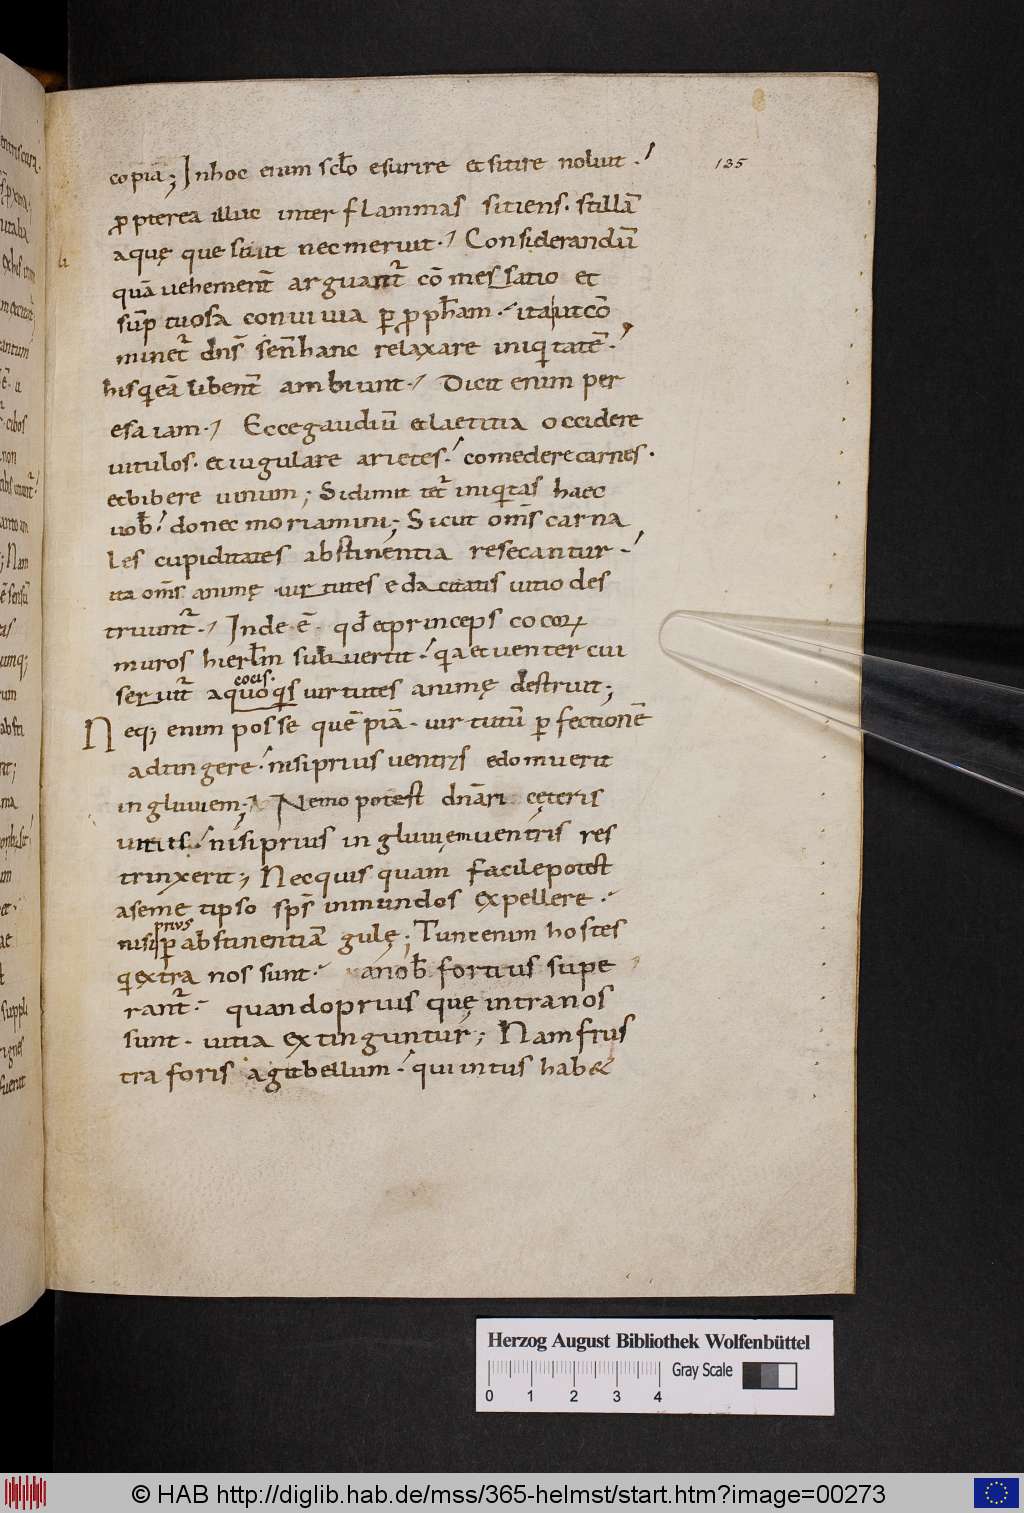 135
copiā; Inhoc enim sc̄lo esurire et sitire noluit.
ꝓpterea illuc inter flammas sitiens. stillā
aquę que siuit nec meruit. Considerandū
quā uehement̄ arguant̄ cōmessatio et
sūptuosa conuiuia ꝑ ꝓph̄am. ita ut cō
minet̄ dn̄s sen̄hanc relaxare iniq̄tatē.
his q̄ eā libent̄ ambiunt. Dicit enim per
esaiam. Ecce gaudiū et laetitia occidere
uitulos. et iugulare arietes. comedere carnes.
et bibere uinum; Si dimit tet̄ iniq̄tas haec
uob̄. donec moriamini; Sicut om̄s carna
les cupiditates abstinentia resecantur.
ita om̄s animę uirtutes edacitatis uitio des
truunt̄. Inde ē. qđ et princeps cocoꝝ
muros hierl̄m subuertit. q̄a et uenter cui
cocis.
seruit̄ a quo q̄s uirtutes animę destruit;
Neq; enim posse quēpiā. uirtutū ꝑfectionē
adtingere. nisi prius uentris edomuerit
ingluuiem; Nemo potest dn̄ari cęteris
uitiis. nisi prius ingluuięm uentris res
trinxerit; Nec quis quam facile potest
a semetipso sp̄s inmundos expellere.
prius
nisi ꝑ abstinentiā gulę; Tunc enim hostes
q̄ extra nos sunt. a nob̄ fortius supe
rant̄. quando prius quę intra nos
sunt. uitia extinguntur; Nam frus
tra foris agit bellum. qui intus hab&
Herzog August Bibliothek Wolfenbüttel
Gray Scale
0 1 2 3 4
© HAB http://diglib.hab.de/mss/365-helmst/start.htm?image=00273